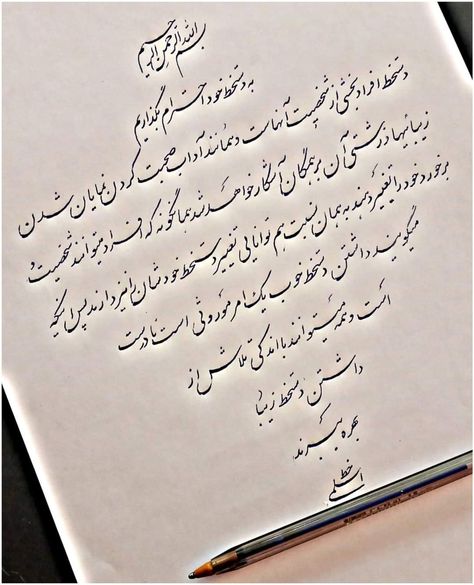 بسم الله الرحمن الرحیم
به دستخط خود احترام بگذاریم
دستخط افراد بخشی از شخصیت آنهاست و همانند آداب صحبت کردن نمایان شدن
زیبائیها و زشتی آن بر همگان آشکار خواهد شد همانگونه که افراد میتوانند شخصیت و
برخورد خود را تغییر دهند به همان نسبت هم توانایی تغییر دستخط خودشان را نیز دارند پس اینکه
میگویند داشتن دستخط خوب یک امر موروثی است نادرست
است و همه میتوانند با اندکی تلاش از
داشتن دستخط زیبا
بهره ببرند
خط